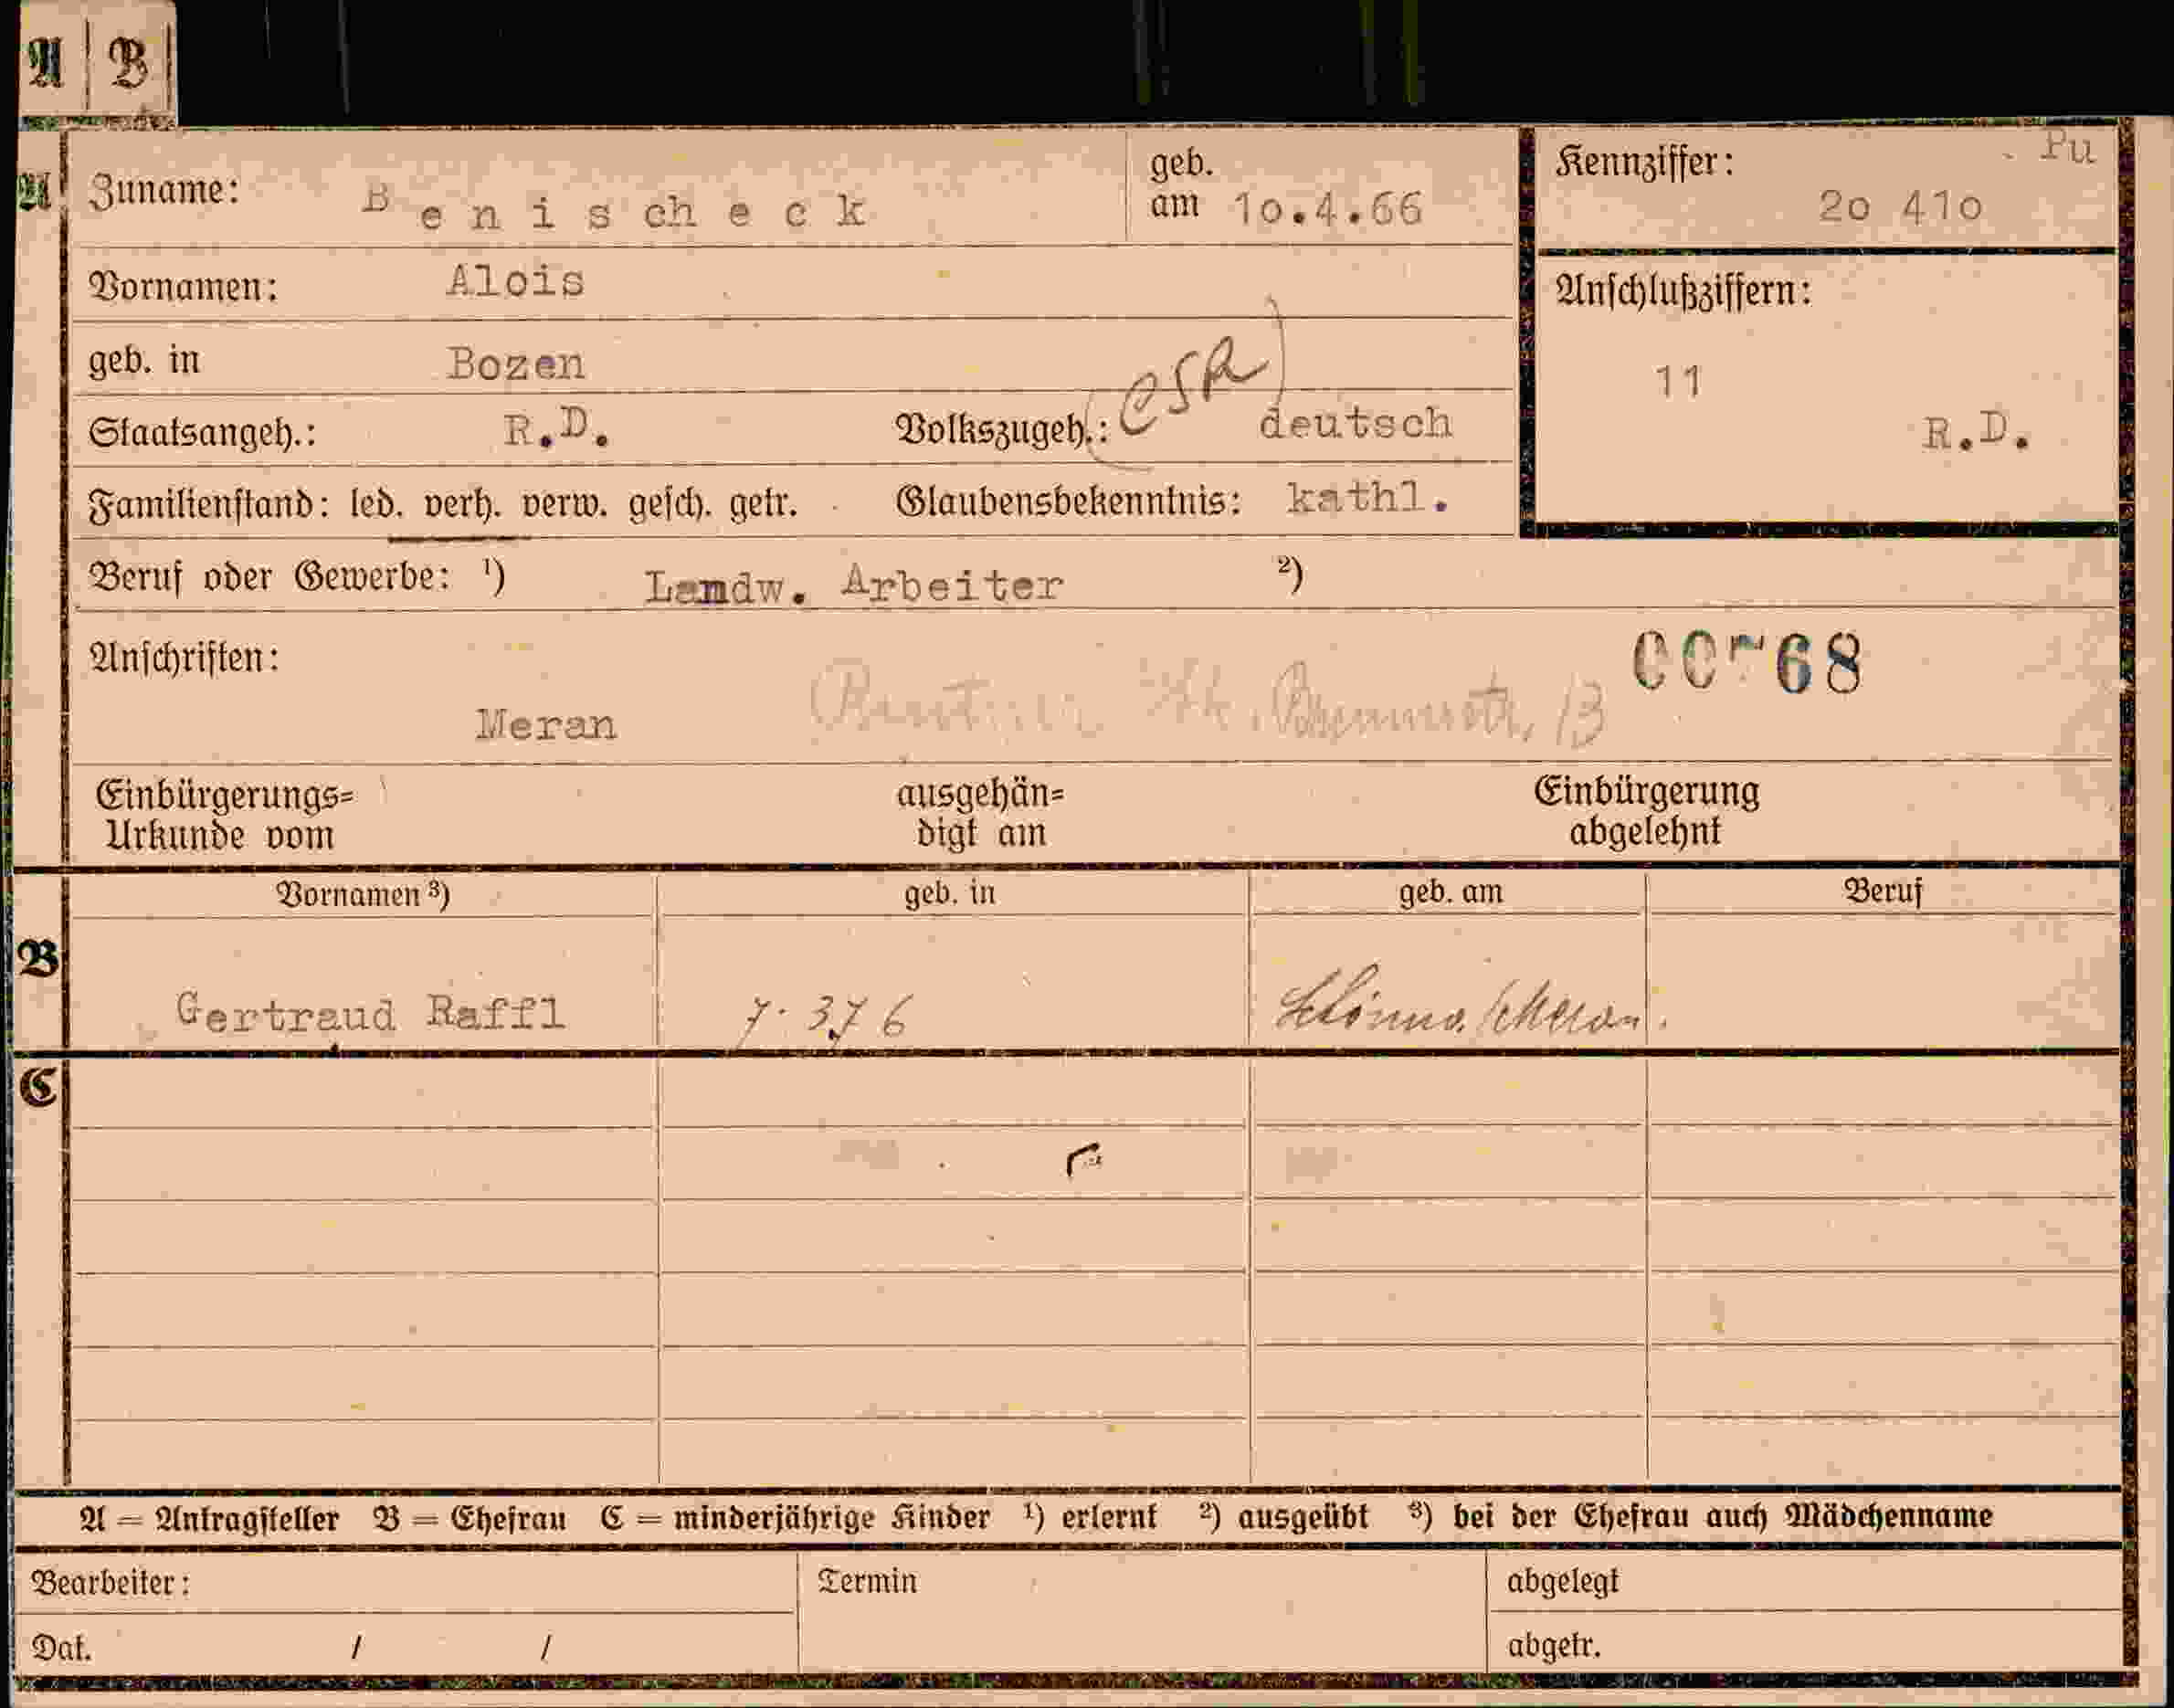 A B
A Zuname: Benischeck geb. am 10.4.66
Kennziffer: Pu
20 410
Vornamen: Alois
Anschlußziffern:
geb. in Bozen
11
(CSR)
Staatsangeh.: R.D. Volkszugeh.: deutsch
R.D.
Familienstand: led. verh. verw. gesch. getr. Glaubensbekenntnis: kathl.
Beruf oder Gewerbe: ¹) Landw. Arbeiter ²)
Anschriften:
Meran
Einbürgerungs=
Urkunde vom
ausgehän=
digt am
Einbürgerung
abgelehnt
Vornamen ³) geb. in geb. am Beruf
B Gertraud Raffl 7.3.76 Meran.
C
A = Antragsteller B = Ehefrau C = minderjährige Kinder ¹) erlernt ²) ausgeübt ³) bei der Ehefrau auch Mädchenname
Bearbeiter: Termin abgelegt
Dat. / / abgetr.